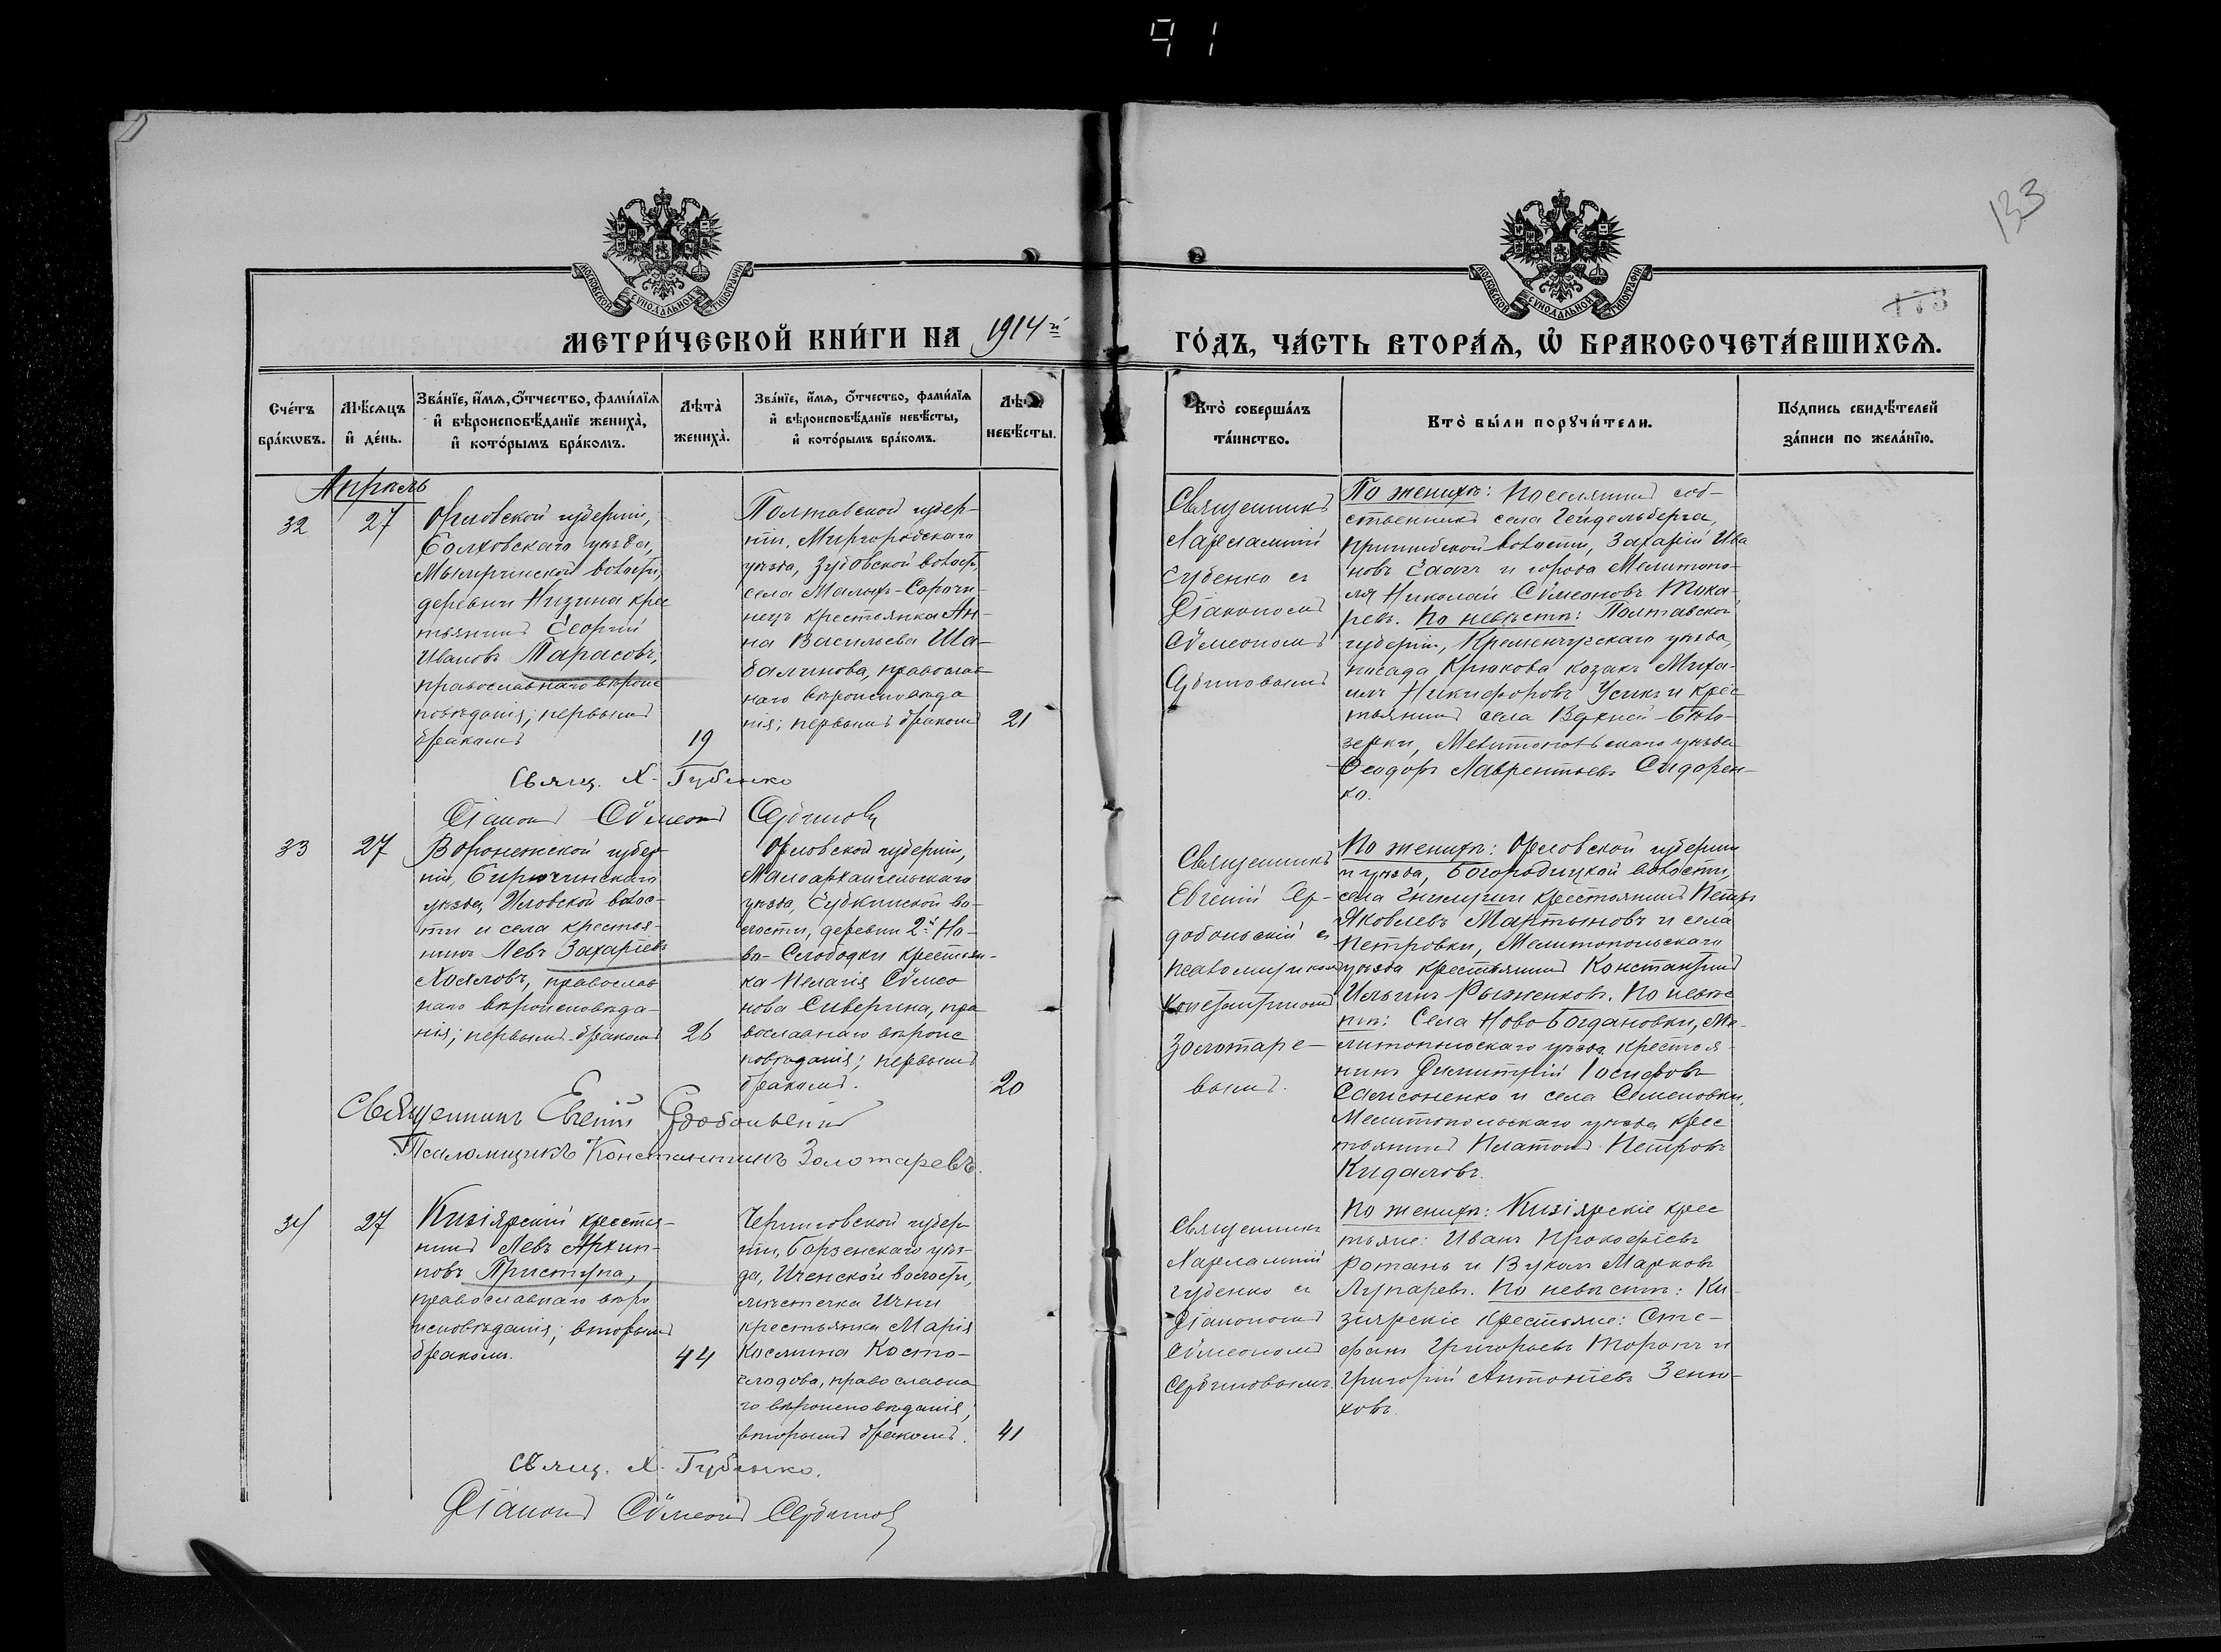 91
133
173
МОСКОВСКОЙ СѴНОДАЛЬНОЙ ТИПОГРАФІИ
МОСКОВСКОЙ СѴНОДАЛЬНОЙ ТИПОГРАФІИ
МЕТРИ́ЧЕСКОЙ КНИ́ГИ НА 1914й
ГО́ДЪ, ЧА́СТЬ ВТОРА́Ѧ, Ѡ҆ БРАКОСОЧЕТА́ВШИХСѦ.
Сче́тъ бра́кѡвъ.
Мѣ́сѧцъ и҆ де́нь.
Зва́нїе, и҆́мѧ, ѻ҆́тчество, фами́лїѧ и҆ вѣроисповѣ́данїе жениха̀, и҆ кото́рымъ бра́комъ.
Лѣта̀ жениха̀.
Зва́нїе, и҆́мѧ, ѻ҆́тчество, фами́лїѧ и҆ вѣроисповѣ́данїе невѣ́сты, и҆ кото́рымъ бра́комъ.
Лѣта̀ невѣ́сты.
Кто̀ соверша́лъ та́инство.
Кто̀ бы́ли порꙋчи́тели.
По́дпись свидѣ́телей за́писи по жела́нїю.
Апрѣль
32
27
Орловской губерніи,
Болховскаго уѣзда,
волости,
деревни Низина крес
тьянинъ Георгій
Ивановъ Тарасовъ,
православнаго вѣроис
повѣданія; первымъ
бракомъ
19
Полтавской губер-
ніи, Миргородскаго
уѣзда, Зубовской волости,
села Малыхъ-Сорочи-
нецъ крестьянка Ан-
на Васильева Ша-
балинова, православ
наго вѣроисповѣда
нія; первымъ бракомъ
21
Священникъ
Харлампій
Губенко съ
Діакономъ
Сѵмеономъ
Сербиновымъ
По женихѣ: Поселянинъ соб-
ственникъ села Гейдельберга,
Пришибской волости, Захарій Ива
новъ Гаакъ и города Мелитопо-
ля Николай Сѵмеоновъ Тока-
ревъ. По невѣстѣ: Полтавской
губерніи, Кременчугскаго уѣзда,
посада Крюкова козакъ Миха-
илъ Никифоровъ Усикъ и крес
тьянинъ села Верхней-Бѣло-
зерки, Мелитопольскаго уѣзда
Ѳеодоръ Лаврентьевъ Сидорен-
ко.
Свящ. Х. Губенко
Діаконъ Сѵмеонъ Сербиновъ
33
27
Воронежской губер
ніи, Бирюченскаго
уѣзда, Иловской волос-
ти и села крестья-
нинъ Левъ Захаріевъ
православ
наго вѣроисповѣда-
нія; первымъ бракомъ
26
Орловской губерніи,
Малоархангельскаго
уѣзда, Губкинской во-
лости, деревни 2й Но-
во-Слободки крестьян-
ка Пелагія Сѵмео
нова Сиверина, пра
вославнаго вѣроис
повѣданія; первымъ
бракомъ.
20
Священникъ
Евгеній Сер-
добольскій съ
псаломщикомъ
Константиномъ
Золотаре-
вымъ.
По женихѣ: Орловской губерніи
и уѣзда, Богородицкой волости,
села крестьянинъ Петръ
Яковлевъ Мартыновъ и села
Петровки, Мелитопольскаго
уѣзда крестьянинъ Константинъ
Ильинъ Рыженковъ. По невѣс
тѣ: Села Ново-Богдановки, Ме-
литопольскаго уѣзда крестья
нинъ Димитрій Іосифовъ
Самсоненко и села Семеновки,
Мелитопольскаго уѣзда крес
тьянинъ Платонъ Петровъ
Кидаловъ.
Священникъ Евгеній Сердобольскій
Псаломщикъ Константинъ Золотаревъ.
34
27
Кизіярскій крестья-
нинъ Левъ Архип-
повъ Приступа,
православнаго вѣро
исповѣданія; вторымъ
бракомъ.
44
Черниговской губер
ніи, Борзенскаго уѣз-
да, Иченской волости,
мѣстечка Ични
крестьянка Марія
Косьмина Косто-
глодова, православна
го вѣроисповѣданія;
вторымъ бракомъ.
41
Священникъ
Харлампій
Губенко съ
Діакономъ
Сѵмеономъ
Сербиновымъ.
По женихѣ: Кизіярскіе крес
тьяне: Иванъ Прокофіевъ
Ротань и Вуколъ Марковъ
Лупаревъ. По невѣстѣ: Ки-
зіярскіе крестьяне: Сте-
фанъ Григорьевъ Торопъ и
Григорій Антоніевъ Зеню-
ховъ.
Свящ. Х. Губенко.
Діаконъ Сѵмеонъ Сербиновъ